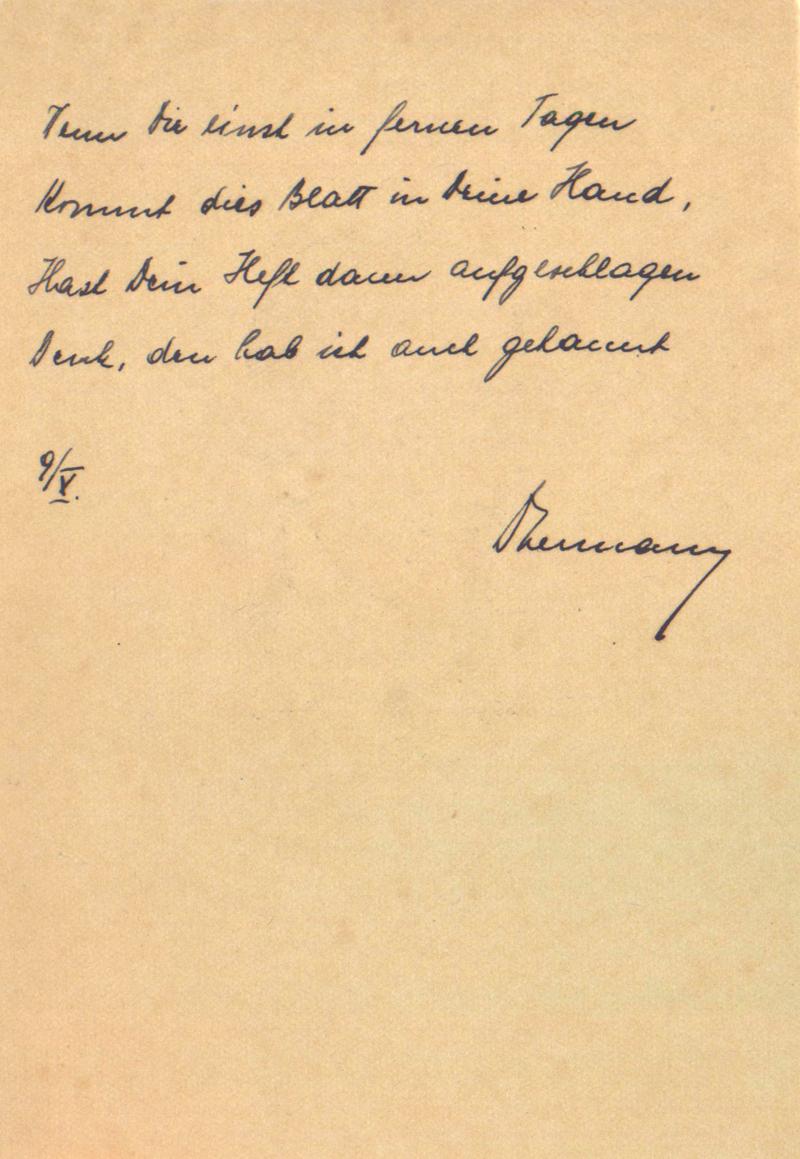 Wenn Dir einst in fernen Tagen
Kommt dies Blatt in Deine Hand,
Hast Dein Heft dann aufgeschlagen
Denk, den hab ich auch gekannt
9/V.